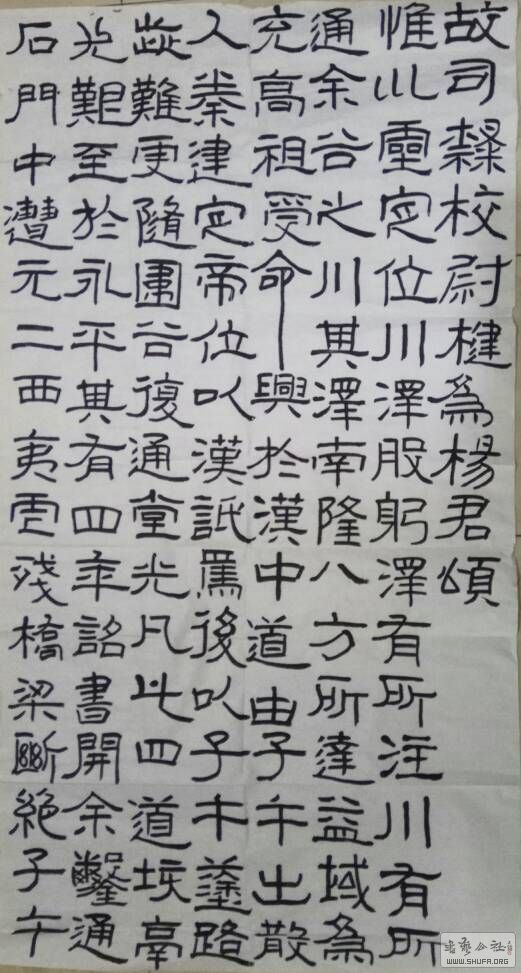 故司隸校尉楗為楊君頌
惟巛靈定位川澤股躬澤有所注川有所
通余谷之川其澤南隆八方所達益域為
充高祖受命興於漢中道由子午出散
入秦建定帝位以漢詆焉後以子午塗路
歮難更隨圍谷復通堂光凡此四道垓鬲
光艱至於永平其有四年詔書開余鑿通
石門中遭元二西夷虐殘橋梁斷絕子午
书艺公社
WWW.SHUFA.ORG